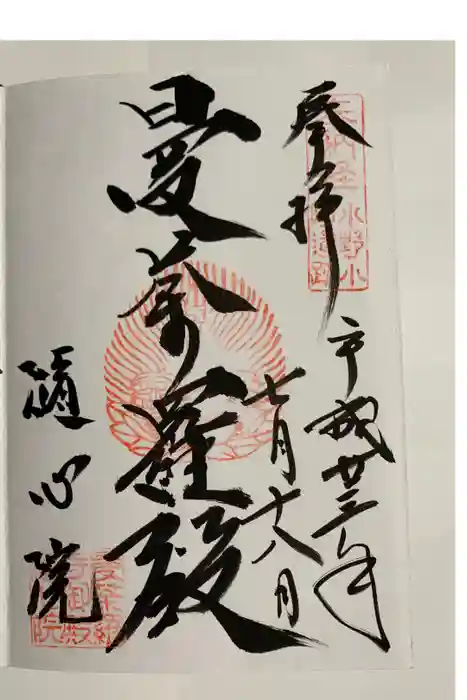 奉拝
平成廿三年
七月十八日
曼荼羅殿
隨心院